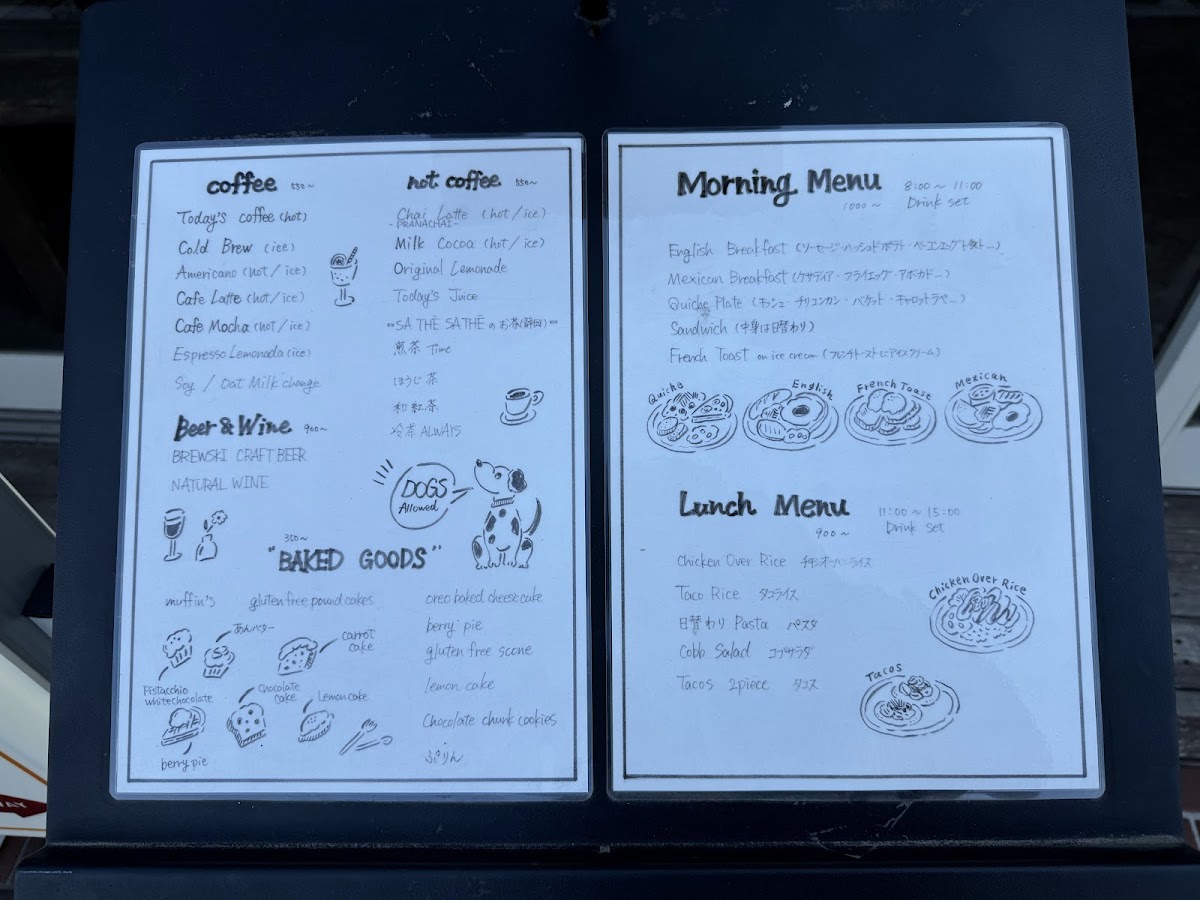 coffee 550~
Today's coffee (hot)
Cold Brew (ice)
Americano (hot / ice)
Cafe Latte (hot / ice)
Cafe Mocha (hot / ice)
Espresso Lemonade (ice)
Soy / Oat Milk change
Beer & Wine 900~
BREWSKI CRAFT BEER
NATURAL WINE
not coffee 550~
Chai Latte (hot / ice)
- PRANACHAI -
Milk Cocoa (hot / ice)
Original Lemonade
Today's Juice
SA THĒ SA THĒ のお茶(静岡)
煎茶 Time
ほうじ茶
和紅茶
冷茶 ALWAYS
DOGS
Allowed
350~
"BAKED GOODS"
muffin's
gluten free pound cakes
あんバター
carrot
cake
Pistacchio
white chocolate
chocolate
cake
Lemon cake
berry pie
oreo baked cheese cake
berry pie
gluten free scone
lemon cake
Chocolate chunk cookies
ぷりん
Morning Menu 8:00 ~ 11:00
1000 ~ Drink set
English Breakfast (ソーセージ・ハッシュドポテト・ベーコンエッグトースト…)
Mexican Breakfast (ケサディア・フライエッグ・アボカド…)
Quiche Plate (キッシュ・チリコンカン・バケット・キャロットラペ…)
Sandwich (中身は日替わり)
French Toast on ice cream (フレンチトーストにアイスクリーム)
Quiche
English
French Toast
Mexican
Lunch Menu 11:00 ~ 15:00
900 ~ Drink set
Chicken Over Rice チキンオーバーライス
Taco Rice タコライス
日替わり Pasta パスタ
Cobb Salad コブサラダ
Tacos 2piece タコス
Chicken Over Rice
Tacos